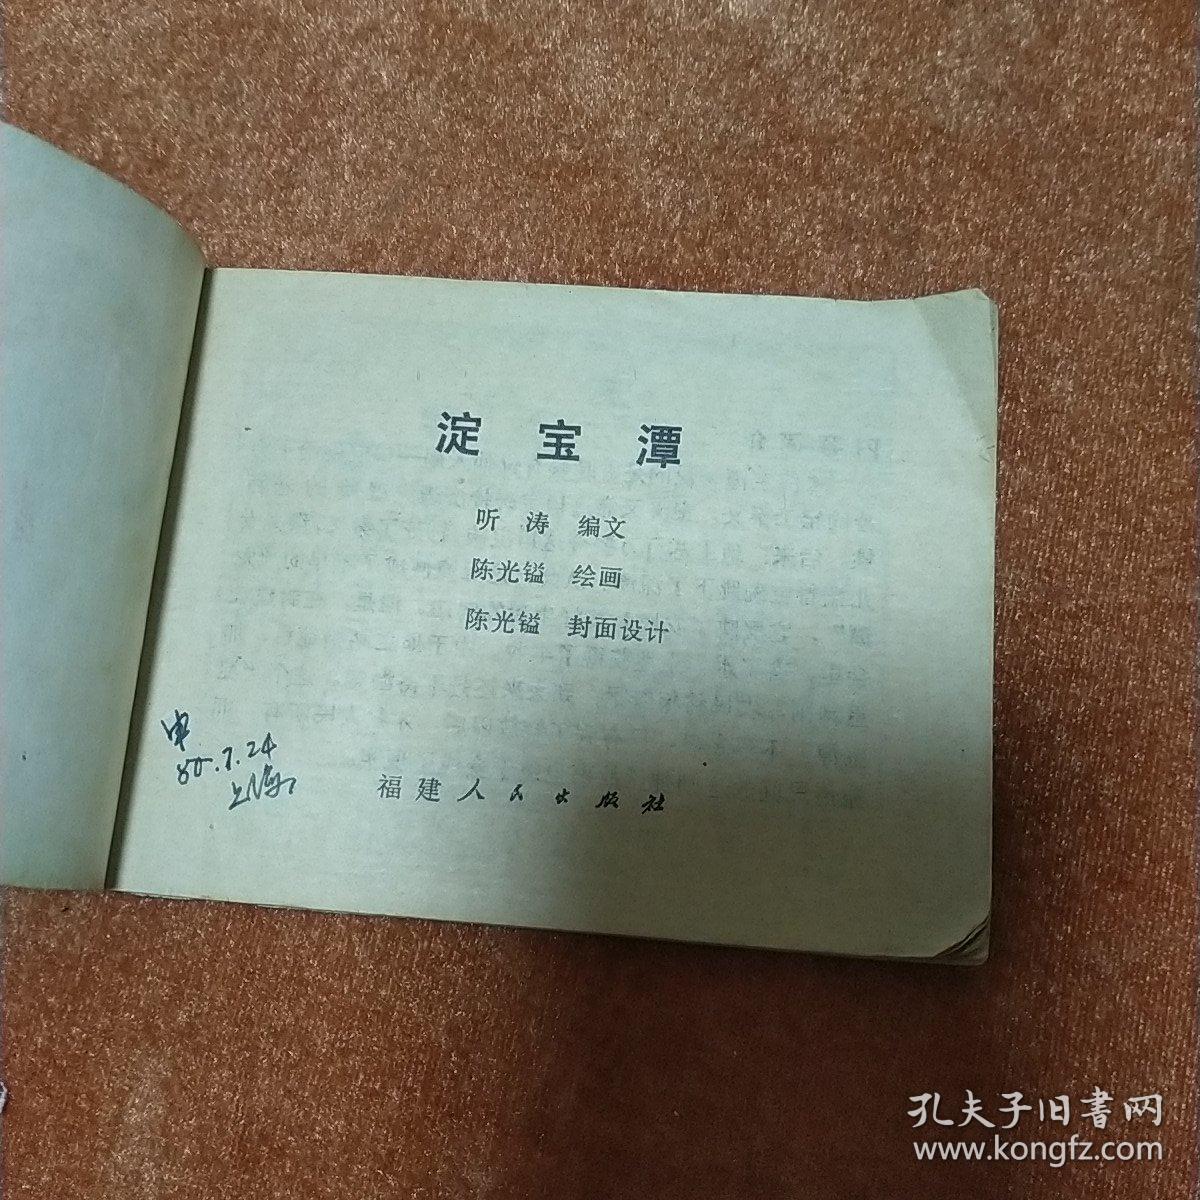 淀宝潭
听涛 编文
陈光镒 绘画
陈光镒 封面设计
80.7.24
上海
福建人民出版社
孔夫子旧書网
www.kongfz.com